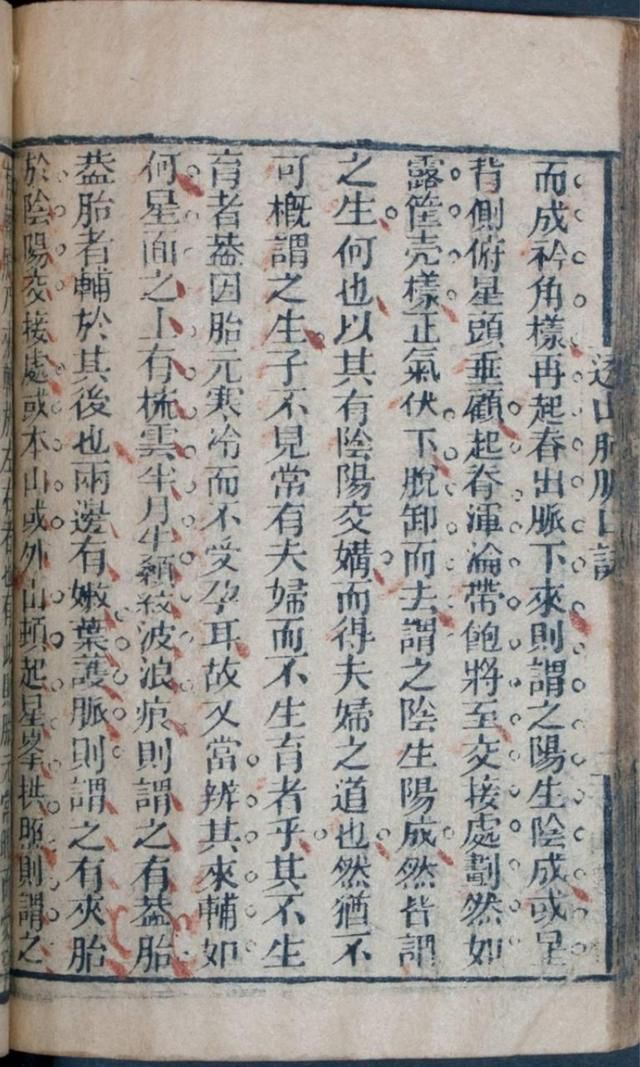 而成衿角樣再起春出脈下來則謂之陽生陰成或星
背側俯星頭垂顧起脊渾淪帶飽將至交接處劃然如
露筐壳樣正氣伏下脫卸而去謂之陰生陽成然皆謂
之生何也以其有陰陽交媾而得夫婦之道也然猶不
可概謂之生子不見常有夫婦而不生育者乎其不生
育者葢因胎元寒冷而不受孕耳故又當辨其來輔如
何星面之上有梳雲半月牛纇紋波浪痕則謂之有葢胎
葢胎者輔於其後也兩邊有嫩葉護脈則謂之有夾胎
於陰陽交接處或本山或外山頓起星峯拱照則謂之